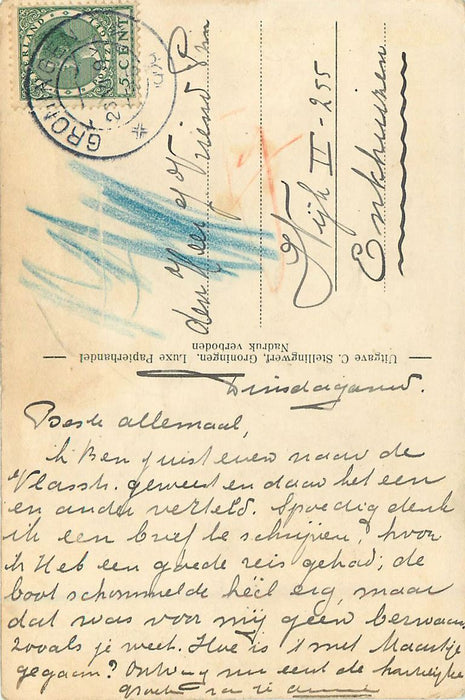 NEDERLAND
5 CENT
GRONINGEN
den Heer J. Vriend Pzn
Wijk II - 255
Enkhuizen
Uitgave C. Stellingwerf, Groningen. Luxe Papierhandel
Nadruk verboden
Dinsdagavond.
Beste allemaal,
ik Ben juist even naar de
Vlasstr. geweest en daar het een
en ander verteld. Spoedig denk
ik een brief te schrijven, hoor
ik Heb een goede reis gehad; de
boot schommelde héél erg, maar
dat was voor mij geen bezwaar
zooals je weet. Hoe is 't met Maartje
gegaan? Ontvang nu eerst de hartelijke
groeten van